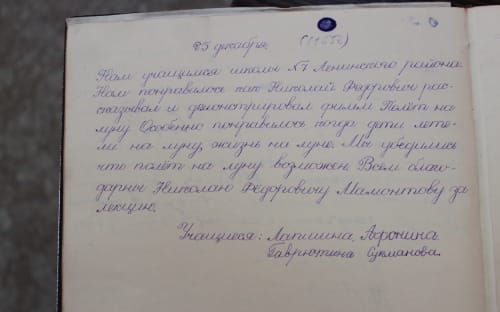 25 декабря. (1955г)
Нам учащимся школы №7 Ленинского района.
Нам понравилось как Николай Федорович рас-
сказывал и демонстрировал фильм Полёт на
луну. Особенно понравилось когда дети лете-
ли на луну, жизнь на луне. Мы убедились
что полёт на луну возможен. Всем благо-
дарны Николаю Федоровичу Мамонтову за
лекцию.
Учащиеся: Лапшина, Афонина.
Гаврютина Сукманова.